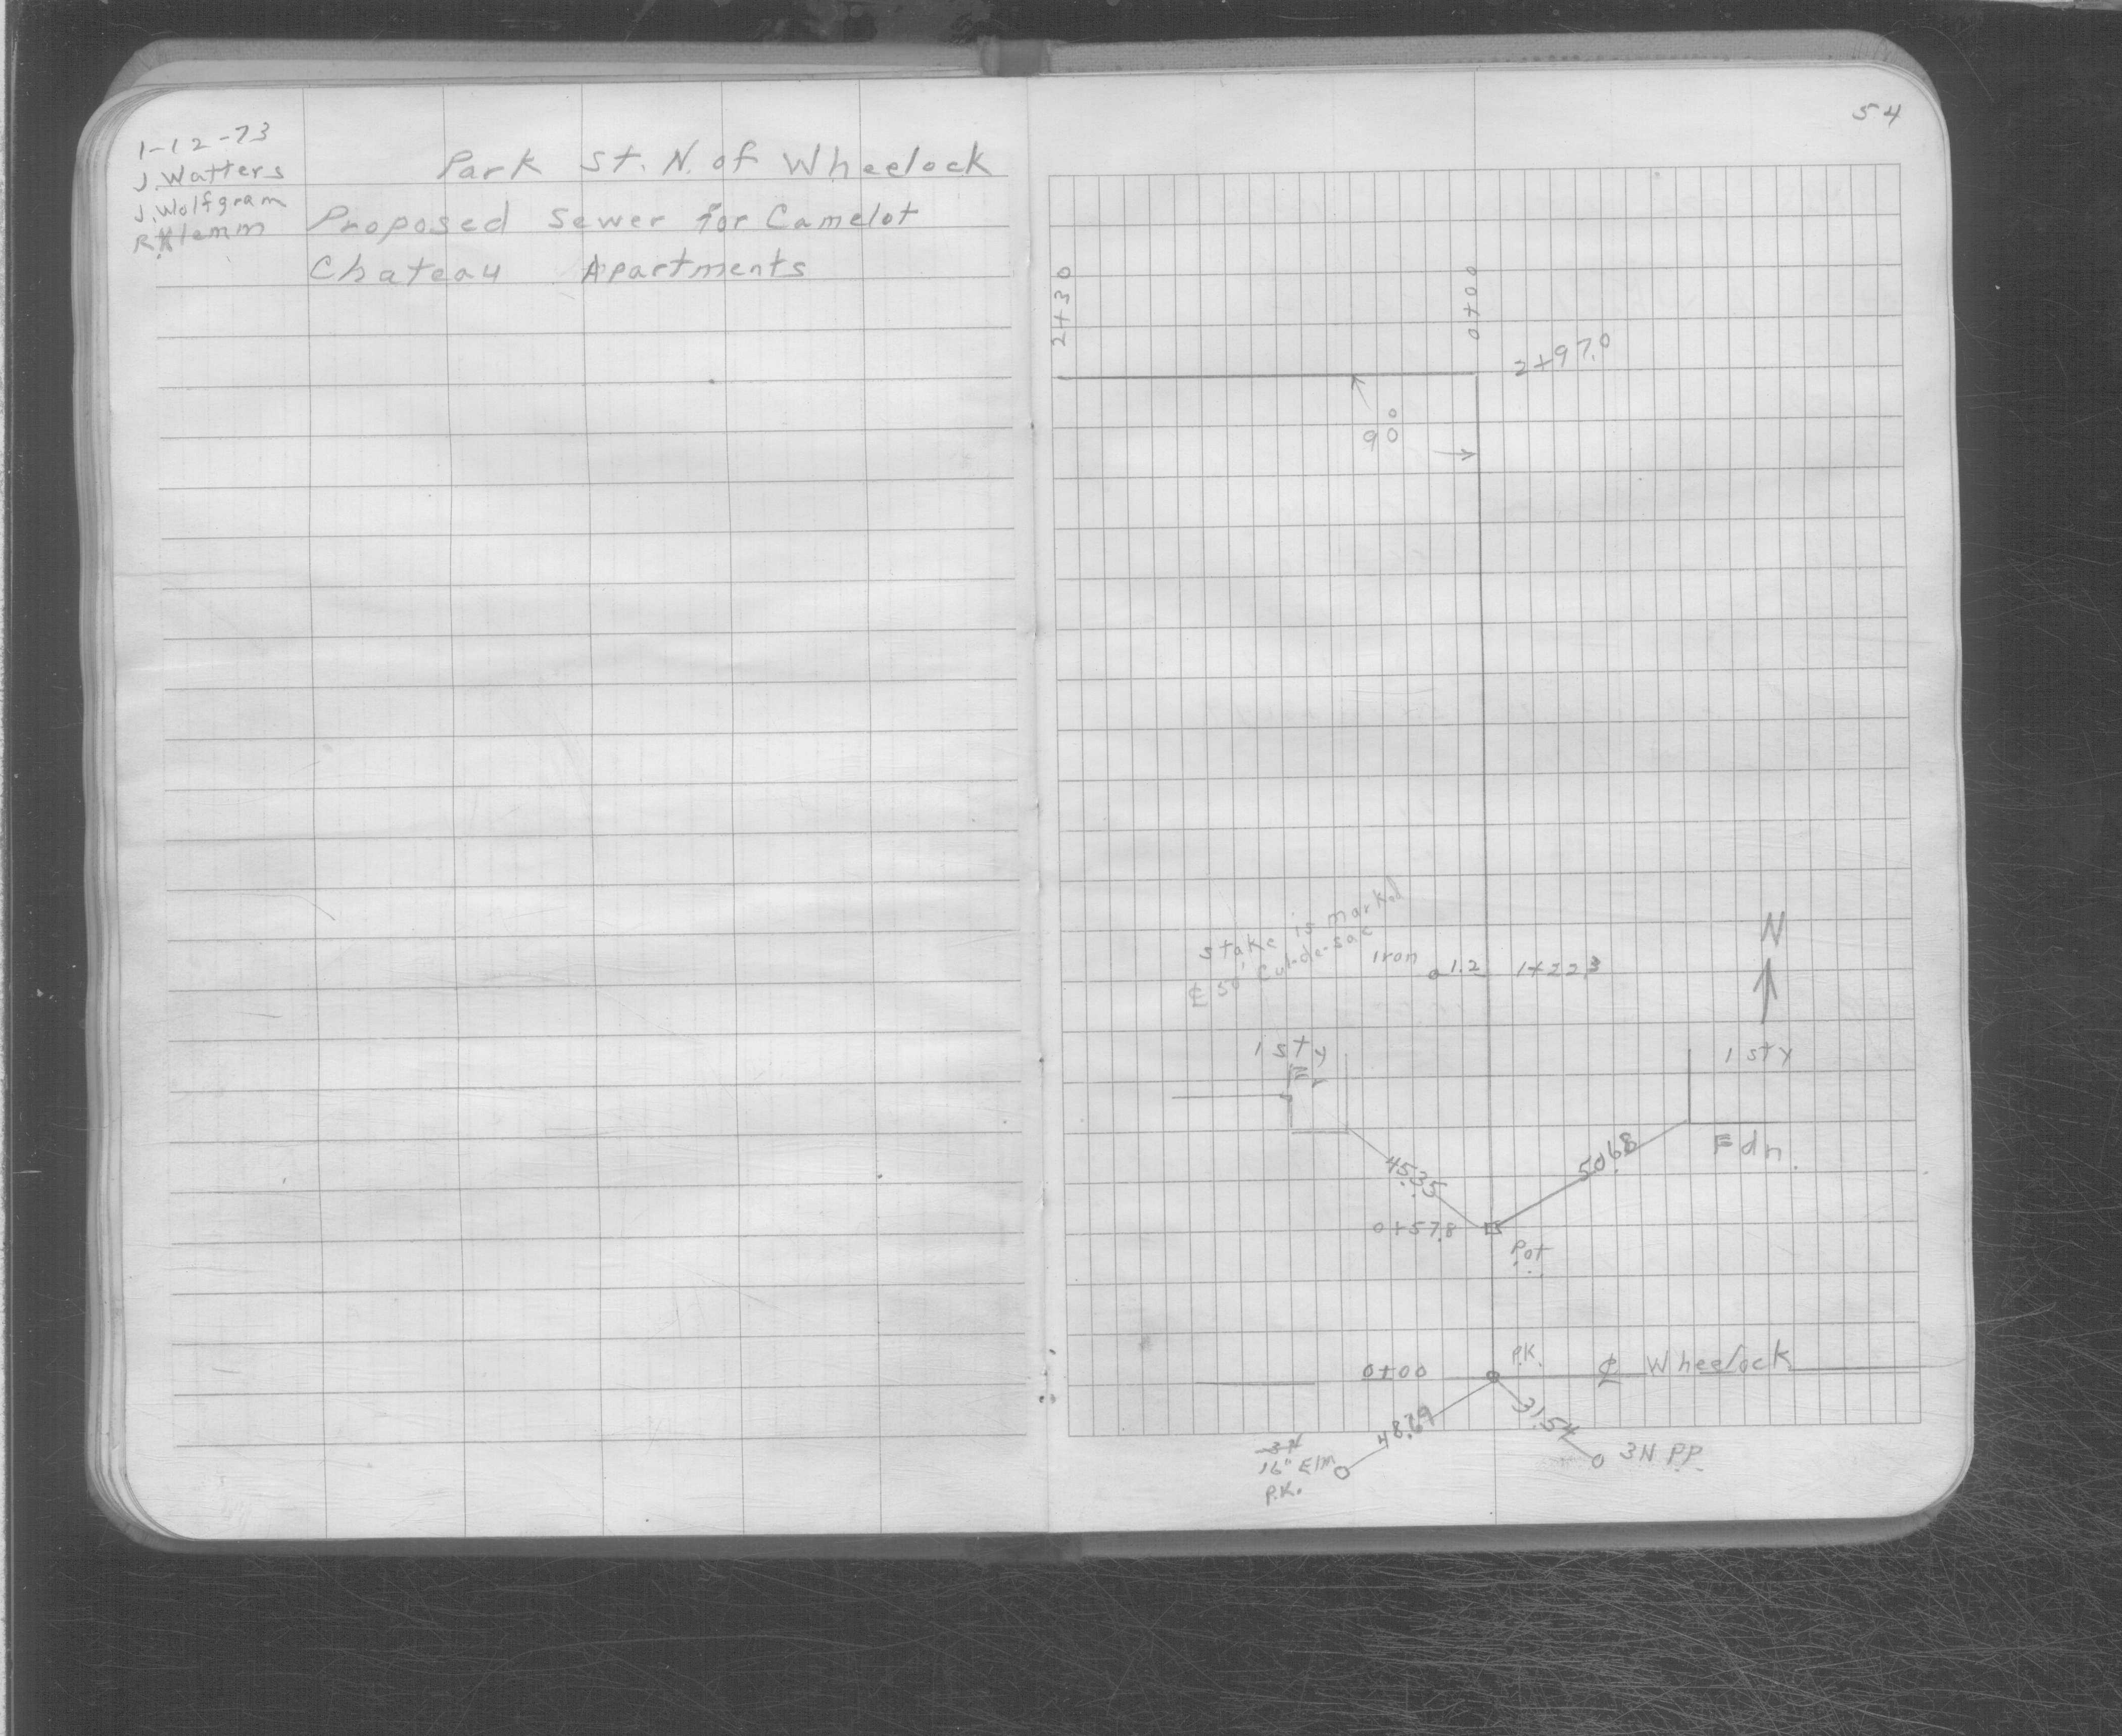 1-12-73
J. Watters
J. Wolfgram
R. Klemm
Park St. N. of Wheelock
Proposed Sewer for Camelot
Chateau Apartments
54
2+30
0+00
2+97.0
90°
stake is marked
℄ 50' Cul-de-sac
Iron
1.2
1+22.3
N
1 sty
Fr
1 sty
Fdn.
45.35
50.68
0+57.8
P.O.T.
P.K.
0+00
℄ Wheelock
48.79
31.54
16" Elm
P.K.
3N P.P.